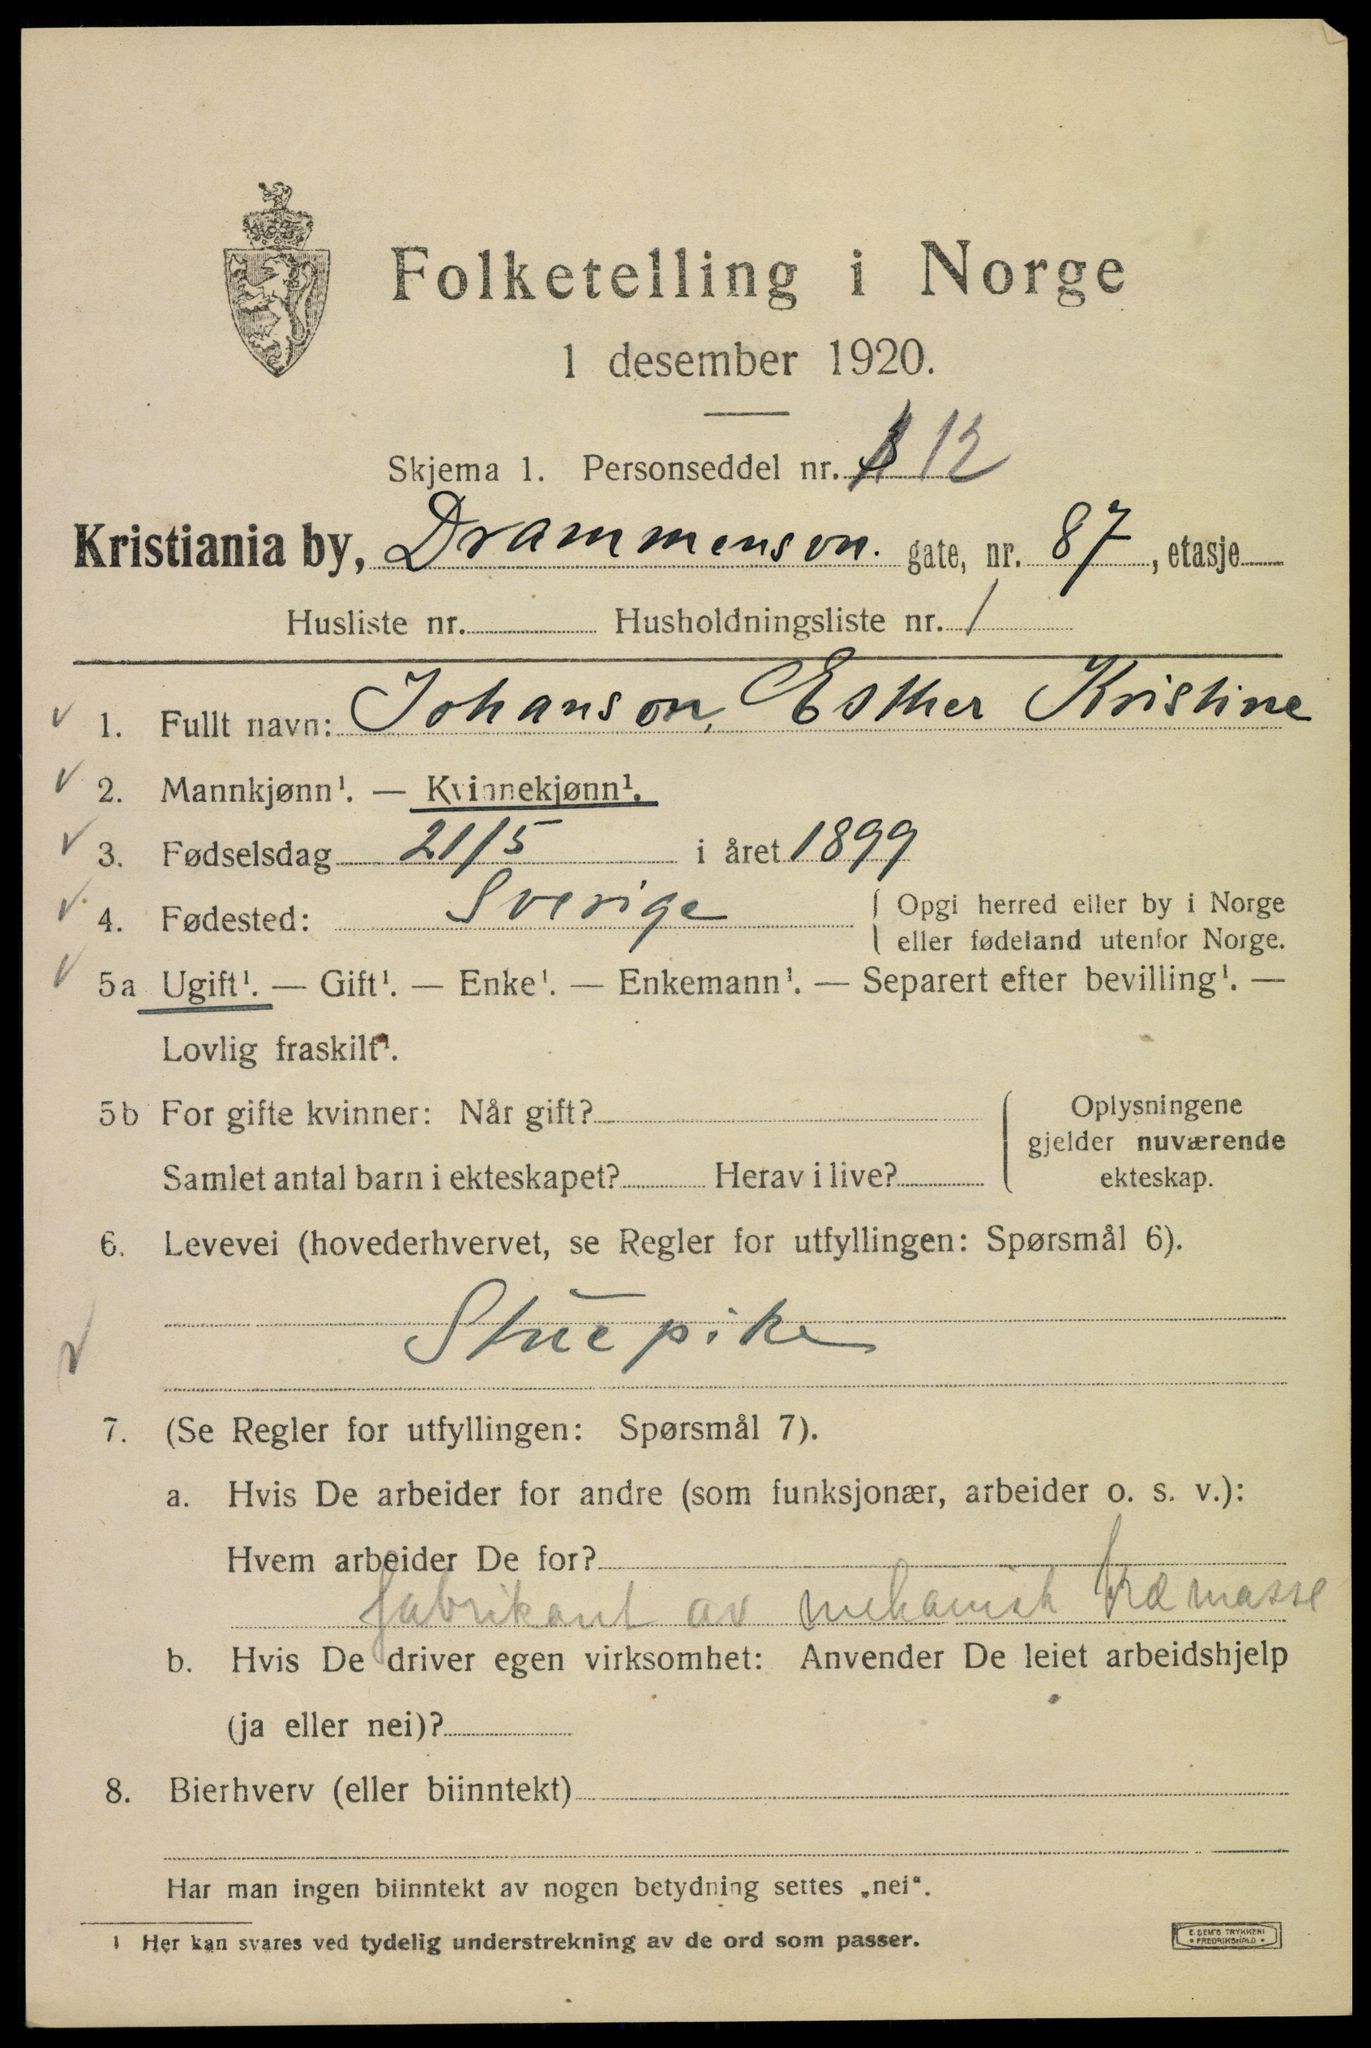 Folketelling i Norge
1 desember 1920.
Skjema 1. Personseddel nr. 12
Kristiania by, Drammensvn. gate, nr. 87, etasje
Husliste nr. Husholdningsliste nr. 1
1. Fullt navn: Johanson, Esther Kristine
2. Mannkjønn¹. — Kvinnekjønn¹.
3. Fødselsdag 21/5 i året 1899
4. Fødested: Sverige { Opgi herred eller by i Norge
eller fødeland utenfor Norge.
5a Ugift¹. — Gift¹. — Enke¹. — Enkemann¹. — Separert efter bevilling¹. —
Lovlig fraskilt¹.
5b For gifte kvinner: Når gift? Oplysningene
gjelder nuværende
Samlet antal barn i ekteskapet? Herav i live? ekteskap.
6. Levevei (hovederhvervet, se Regler for utfyllingen: Spørsmål 6).
Stuepike
7. (Se Regler for utfyllingen: Spørsmål 7).
a. Hvis De arbeider for andre (som funksjonær, arbeider o. s. v.):
Hvem arbeider De for?
fabrikant av mekanisk træmasse
b. Hvis De driver egen virksomhet: Anvender De leiet arbeidshjelp
(ja eller nei)?
8. Bierhverv (eller biinntekt)
Har man ingen biinntekt av nogen betydning settes „nei“.
¹ Her kan svares ved tydelig understrekning av de ord som passer.
E. SEM'S TRYKKERI
• FREDRIKSHALD •